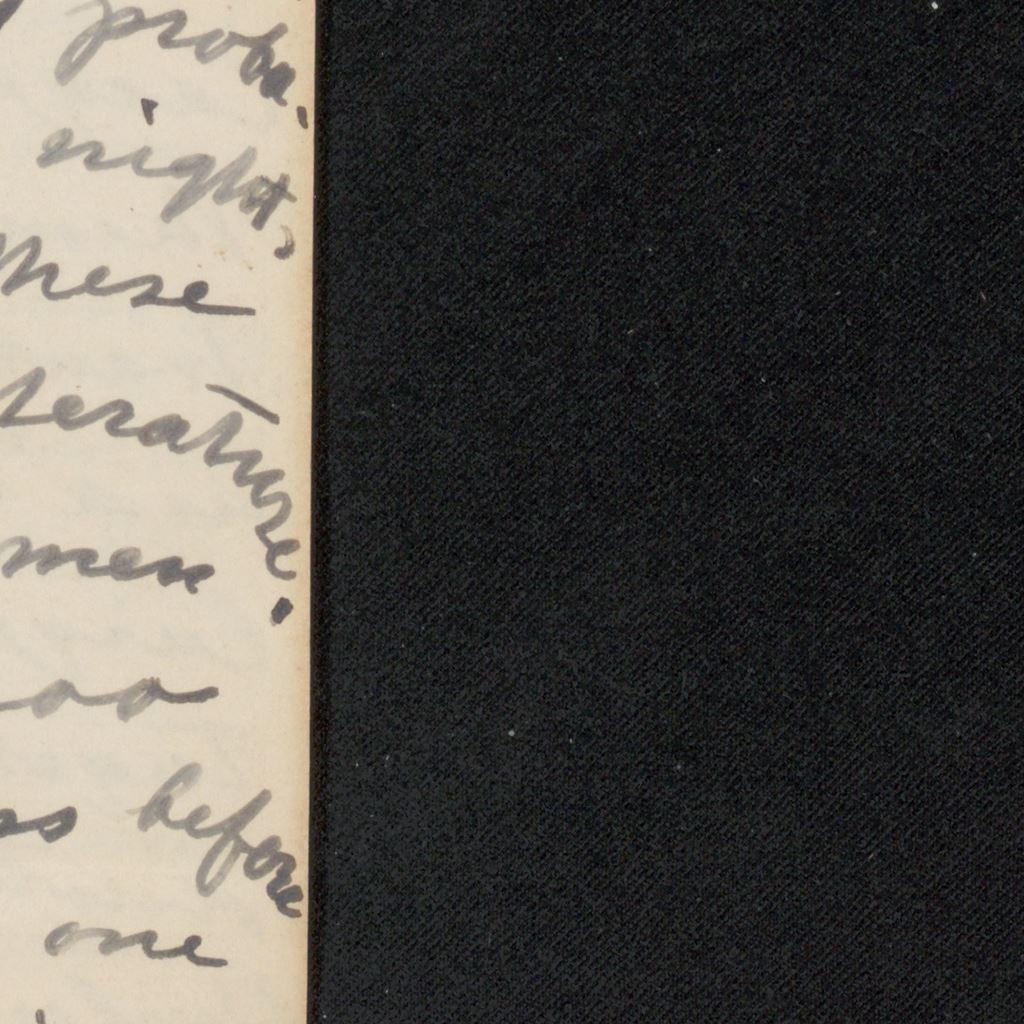 proba-
night,
these
terature.
men
oo
ss before
one